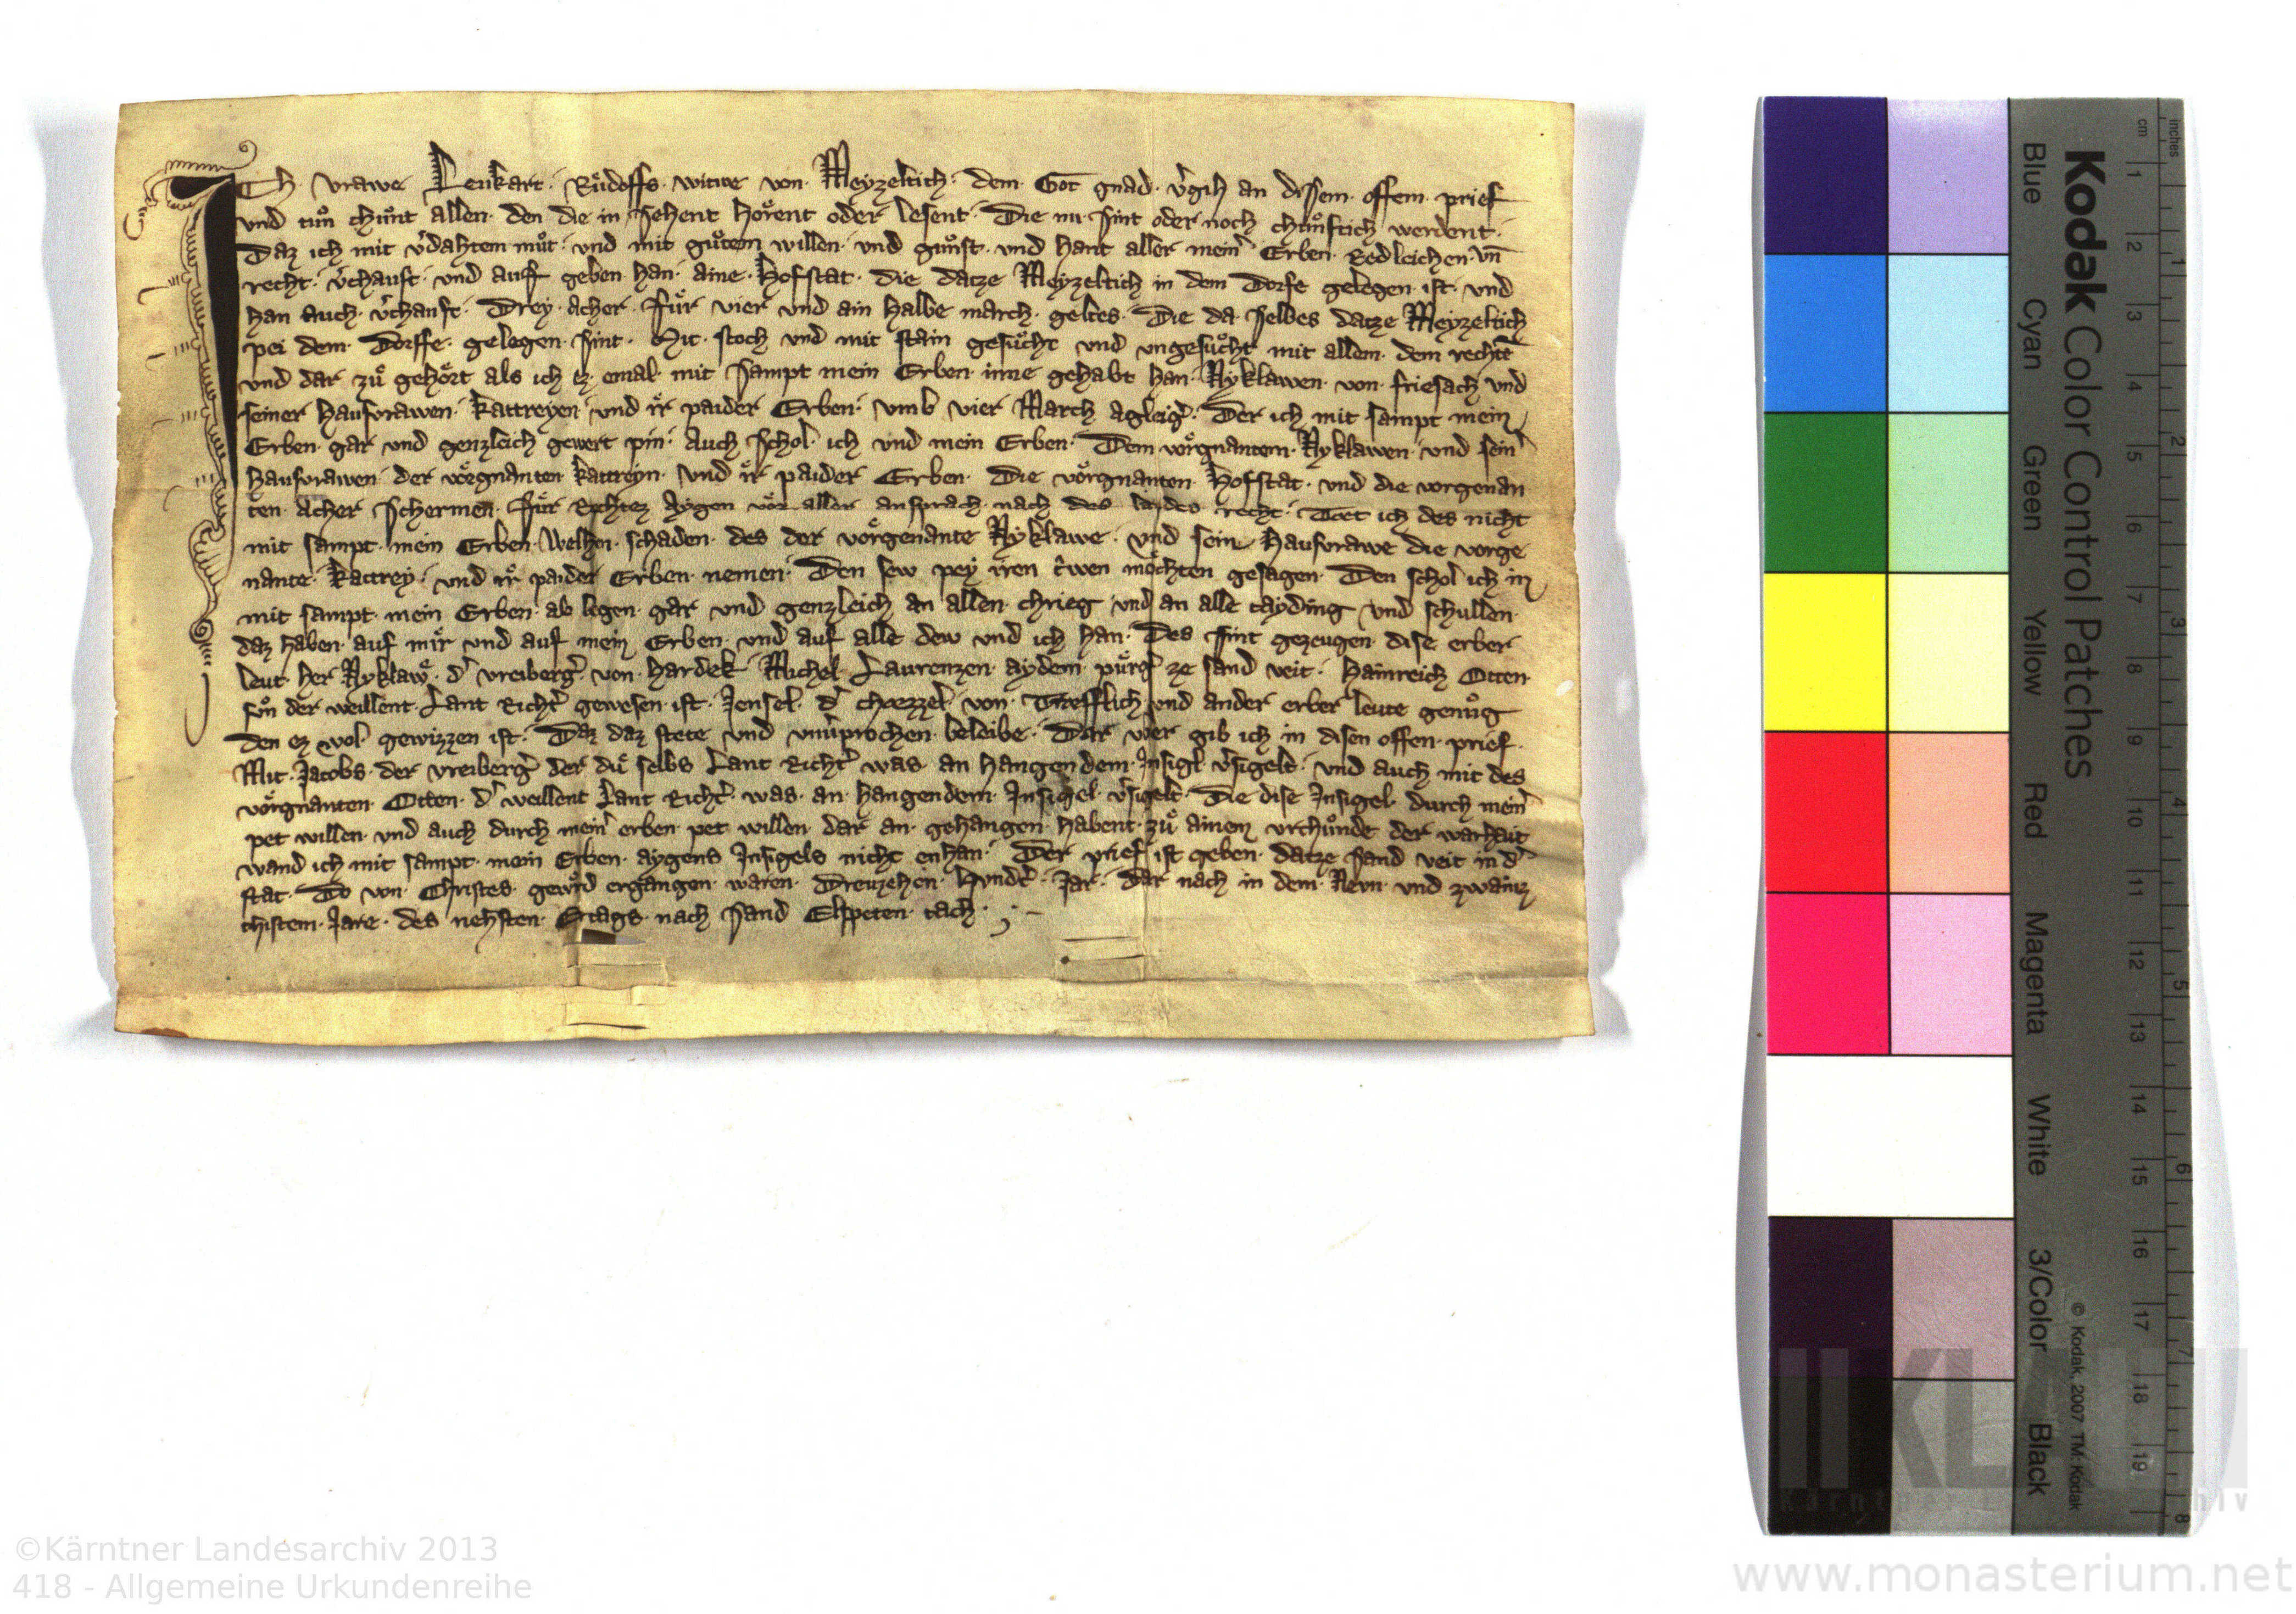 Ich vrawe Leukart Růdolfs witwe von Meyzeltich dem Got gnad v᷎gih an disem offem prief
vnd tůn chůnt allen den die in sehent hoͤrent oder lesent Die nu sint oder noch chůnftich werdent
Daz ich mit v᷎dahtem můt vnd mit gůtem willen vnd gůnst vnd hant aller mein᷎ Erben Redleichen vn̄
recht v᷎chauft vnd auff geben han aine Hofstat die datze Meyzeltich in dem Dorfe gelegen ist vnd
han auch v᷎chauft Drey Acher fuͤr vier vnd ain halbe march geltes Die da selbes datze Meyzeltich
pei dem Dorffe gelegen sint Mit stoch vnd mit stain gesůcht vnd vngesůcht mit allem dem rechte
vnd dar zů gehoͤrt als ich ez emal mit sampt mein Erben inne gehabt han Nyklawen von friesach vnd
seiner hausvrawen kattreyen vnd ir paider Erben vmb vier March Agleig᷎ Der ich mit sampt mein
Erben gar vnd genzleich gewert pin Auch schol ich vnd mein Erben Dem vorgnantem Nyklawen vnd sein᷎
hausvrawen der vorgnanten kattreyn vnd ir paider Erben Die vorgnanten Hofstat vnd die vorgenan
ten Acher Schermen fuͤr Rechtez Aygen vor aller ansprach nach des landes recht Tet ich des nicht
mit sampt mein Erben Welhen schaden des der vorgenante Nyklawe vnd sein hausvrawe die vorge
nante kattrey vnd ir paider Erben nemen Den sew pey iren triwen moͤchten gesagen Den schol ich in
mit sampt mein Erben ab legen gar vnd genzleich an allen chrieg vnd an alle tayding vnd schullen
daz haben auf mir vnd auf mein Erben vnd auf alle dew vnd ich han Des sint gezeugen dise erber
leut her Nyklaw d᷎ vreiberg᷎ von hardek Michel Laurenzen aydem puͤrg᷎ ze sand veit Hainreich Otten
sůn der weillent Lant Richt᷎ gewesen ist Jensel d᷎ von vnd ander erber leute genůg
den ez wol gewizzen ist Daz daz stete vnd vnu᷎prochen beleibe Dar vber gib ich in disen offen prief
Mit Jacobs der vreiberg᷎ der duͤ selbs Lant Richt᷎ was an hangendem Jnsigl v᷎sigelt vnd auch mit des
vorgnanten Otten d᷎ weillent Lant Richt᷎ was an hangendem Jnsigel v᷎sigelt Die dise Jnsigel durch mein᷎
pet willen vnd auch durch mein᷎ erben pet willen dar an gehangen habent zů ainem vrchůnde der warhait
wand ich mit sampt mein Erben aygens Jnsigels nicht enhan Der prief ist geben datze sand veit in d᷎
stat Do von Christes gewrd ergangen waren Dreuzehen Hvndt᷎ Jar Dar nach in dem Nevn vnd zwainz
chistem Jare des nehsten Ertags nach sand Elspeten tach
Kodak Color Control Patches
Blue Cyan Green Yellow Red Magenta White 3/Color Black
© Kodak, 2007 TM: Kodak
cm 1 2 3 4 5 6 7 8 9 10 11 12 13 14 15 16 17 18 19
inches 1 2 3 4 5 6 7 8
©Kärntner Landesarchiv 2013
418 - Allgemeine Urkundenreihe
www.monasterium.net